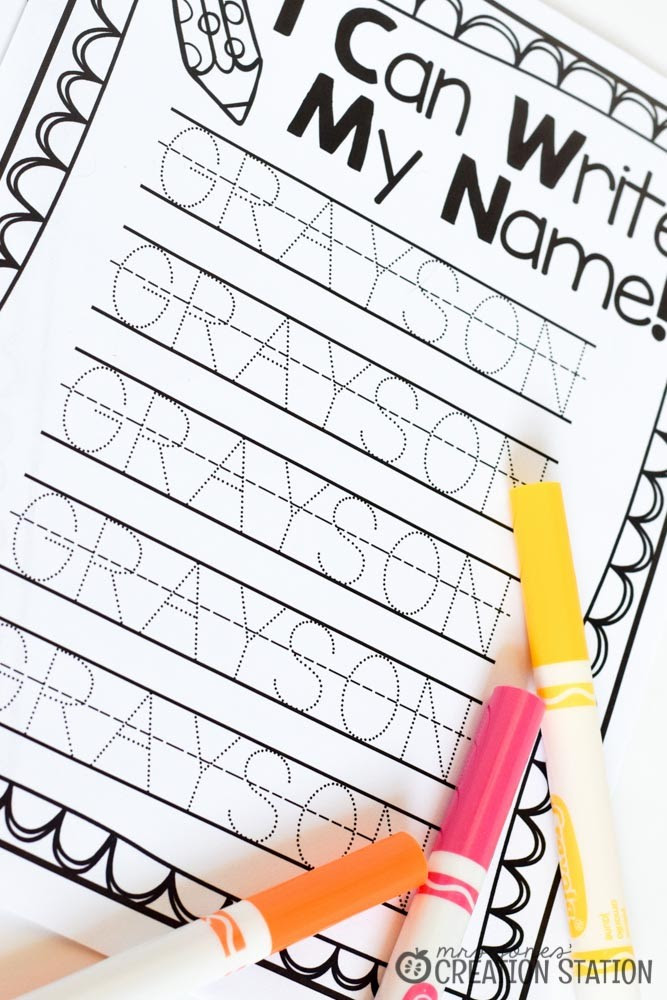 I Can Write
My Name!
GRAYSON
GRAYSON
GRAYSON
GRAYSON
GRAYSON
Crayola
mrs. jones'
CREATION STATION